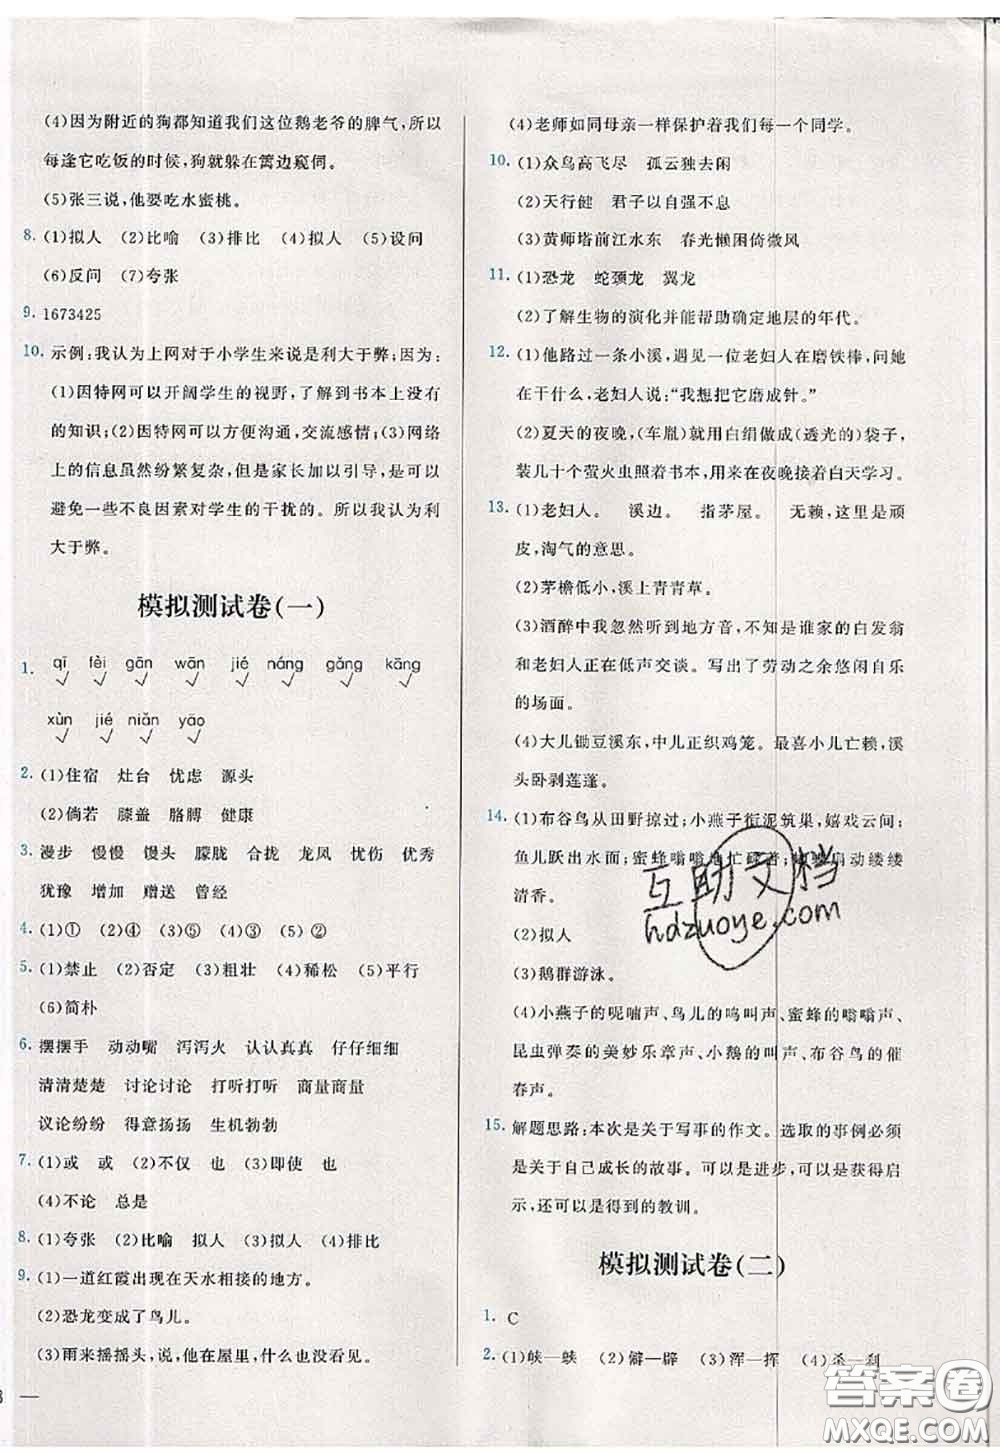 (4)因为附近的狗都知道我们这位鹅老爷的脾气,所以
每逢它吃饭的时候,狗就躲在篱边窥伺。
(5)张三说,他要吃水蜜桃。
8. (1)拟人 (2)比喻 (3)排比 (4)拟人 (5)设问
(6)反问 (7)夸张
9. 1673425
10. 示例:我认为上网对于小学生来说是利大于弊;因为:
(1)因特网可以开阔学生的视野,了解到书本上没有
的知识;(2)因特网可以方便沟通,交流感情;(3)网络
上的信息虽然纷繁复杂,但是家长加以引导,是可以
避免一些不良因素对学生的干扰的。所以我认为利
大于弊。
模拟测试卷(一)
1. qī fèi gān wān jié náng gǎng kāng
xùn jié niǎn yāo
2. (1)住宿 灶台 忧虑 源头
(2)倘若 膝盖 胳膊 健康
3. 漫步 慢慢 馒头 朦胧 合拢 龙凤 忧伤 优秀
犹豫 增加 赠送 曾经
4. (1)① (2)④ (3)⑤ (4)③ (5)②
5. (1)禁止 (2)否定 (3)粗壮 (4)稀松 (5)平行
(6)简朴
6. 摆摆手 动动嘴 泻泻火 认认真真 仔仔细细
清清楚楚 讨论讨论 打听打听 商量商量
议论纷纷 得意扬扬 生机勃勃
7. (1)或 或 (2)不仅 也 (3)即使 也
(4)不论 总是
8. (1)夸张 (2)比喻 拟人 (3)拟人 (4)排比
9. (1)一道红霞出现在天水相接的地方。
(2)恐龙变成了鸟儿。
(3)雨来摇摇头,说,他在屋里,什么也没看见。
(4)老师如同母亲一样保护着我们每一个同学。
10. (1)众鸟高飞尽 孤云独去闲
(2)天行健 君子以自强不息
(3)黄师塔前江水东 春光懒困倚微风
11. (1)恐龙 蛇颈龙 翼龙
(2)了解生物的演化并能帮助确定地层的年代。
12. (1)他路过一条小溪,遇见一位老妇人在磨铁棒,问她
在干什么,老妇人说:“我想把它磨成针。”
(2)夏天的夜晚,(车胤)就用白绢做成(透光的)袋子,
装几十个萤火虫照着书本,用来在夜晚接着白天学习。
13. (1)老妇人。 溪边。 指茅屋。 无赖,这里是顽
皮,淘气的意思。
(2)茅檐低小,溪上青青草。
(3)酒醉中我忽然听到地方音,不知是谁家的白发翁
和老妇人正在低声交谈。写出了劳动之余悠闲自乐
的场面。
(4)大儿锄豆溪东,中儿正织鸡笼。最喜小儿亡赖,溪
头卧剥莲蓬。
14. (1)布谷鸟从田野掠过;小燕子衔泥筑巢,嬉戏云间;
鱼儿跃出水面;蜜蜂嗡嗡地忙碌着;扇动缕缕
清香。
(2)拟人
(3)鹅群游泳。
(4)小燕子的呢喃声、鸟儿的鸣叫声、蜜蜂的嗡嗡声、
昆虫弹奏的美妙乐章声、小鹅的叫声、布谷鸟的催
春声。
15. 解题思路:本次是关于写事的作文。选取的事例必须
是关于自己成长的故事。可以是进步,可以是获得启
示,还可以是得到的教训。
模拟测试卷(二)
1. C
2. (1)峡—蛱 (2)僻—辟 (3)浑—挥 (4)杀—刹
互助文档
hdzuoye.com
答案圈
MXQE.COM